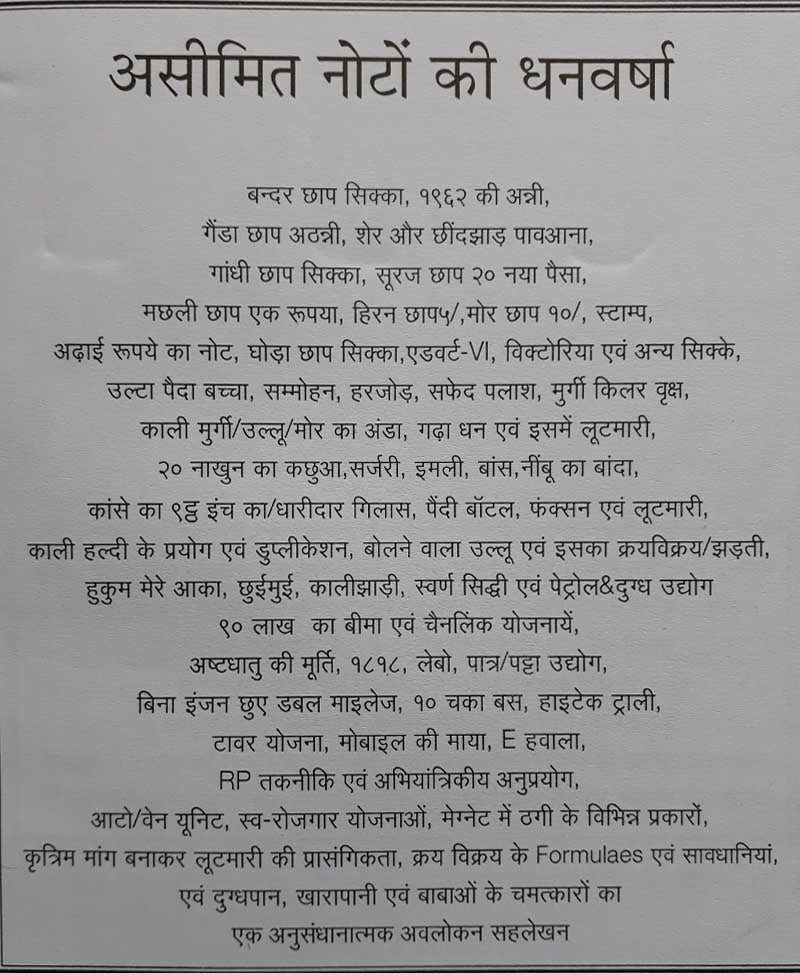 असीमित नोटों की धनवर्षा
बन्दर छाप सिक्का, १९६२ की अन्नी,
गैंडा छाप अठन्नी, शेर और छींदझाड़ पावआना,
गांधी छाप सिक्का, सूरज छाप २० नया पैसा,
मछली छाप एक रूपया, हिरन छाप५/,मोर छाप १०/, स्टाम्प,
अढ़ाई रूपये का नोट, घोड़ा छाप सिक्का,एडवर्ट-VI, विक्टोरिया एवं अन्य सिक्के,
उल्टा पैदा बच्चा, सम्मोहन, हरजोड़, सफेद पलाश, मुर्गी किलर वृक्ष,
काली मुर्गी/उल्लू/मोर का अंडा, गढ़ा धन एवं इसमें लूटमारी,
२० नाखुन का कछुआ,सर्जरी, इमली, बांस,नींबू का बांदा,
कांसे का ९ट्ठ इंच का/धारीदार गिलास, पैंदी बॉटल, फंक्सन एवं लूटमारी,
काली हल्दी के प्रयोग एवं डुप्लीकेशन, बोलने वाला उल्लू एवं इसका क्रयविक्रय/झड़ती,
हुकुम मेरे आका, छुईमुई, कालीझाड़ी, स्वर्ण सिद्धी एवं पेट्रोल&दुग्ध उद्योग
९० लाख का बीमा एवं चैनलिंक योजनायें,
अष्टधातु की मूर्ति, १८१८, लेबो, पात्र/पट्टा उद्योग,
बिना इंजन छुए डबल माइलेज, १० चका बस, हाइटेक ट्राली,
टावर योजना, मोबाइल की माया, E हवाला,
RP तकनीकि एवं अभियांत्रिकीय अनुप्रयोग,
आटो/वेन यूनिट, स्व-रोजगार योजनाओं, मेग्नेट में ठगी के विभिन्न प्रकारों,
कृत्रिम मांग बनाकर लूटमारी की प्रासंगिकता, क्रय विक्रय के Formulaes एवं सावधानियां,
एवं दुग्धपान, खारापानी एवं बाबाओं के चमत्कारों का
एक अनुसंधानात्मक अवलोकन सहलेखन